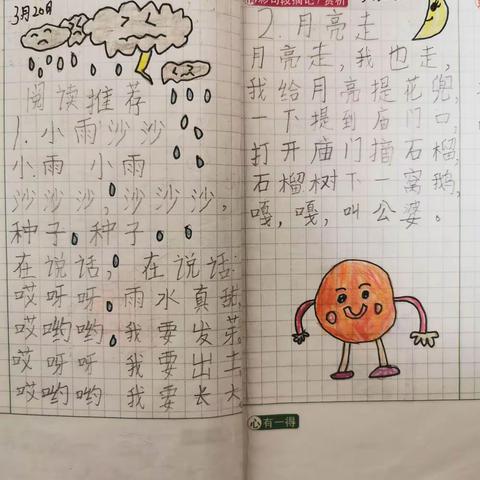 3月20日
阅读推荐
1. 小雨沙沙
小雨 小雨
沙沙沙,沙沙沙,
种子 种子
在说话, 在说话:
哎呀呀 雨水真甜,
哎哟哟 我要发芽。
哎呀呀 我要出土
哎哟哟 我要长大。
2. 月亮走
月亮走,我也走,
我给月亮提花兜,
一下提到庙门口,
打开庙门摘石榴,
石榴树下一窝鹅,
嘎,嘎,叫公婆。
心有一得